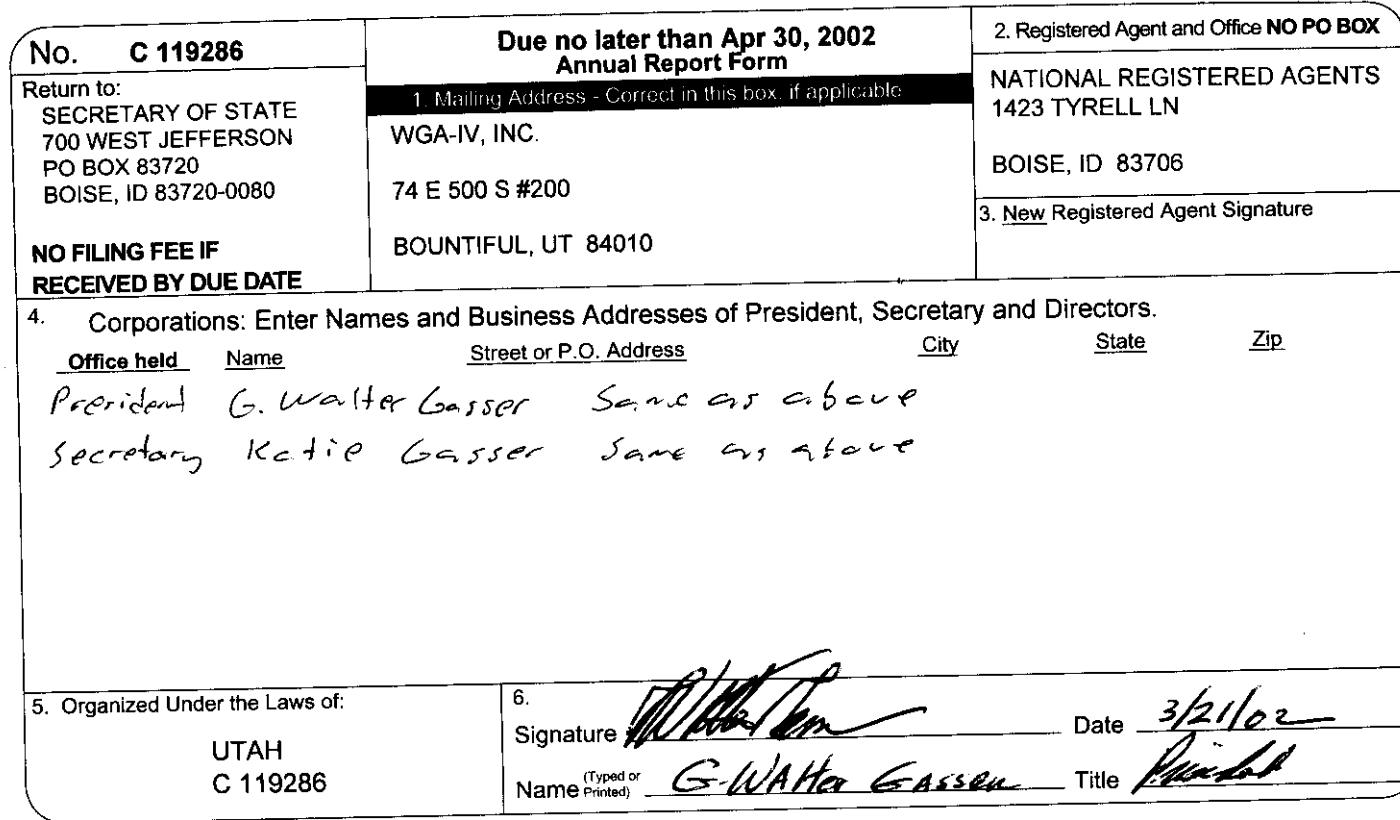 No. C 119286
Return to:
SECRETARY OF STATE
700 WEST JEFFERSON
PO BOX 83720
BOISE, ID 83720-0080
NO FILING FEE IF
RECEIVED BY DUE DATE
Due no later than Apr 30, 2002
Annual Report Form
1. Mailing Address - Correct in this box, if applicable
WGA-IV, INC.
74 E 500 S #200
BOUNTIFUL, UT 84010
2. Registered Agent and Office NO PO BOX
NATIONAL REGISTERED AGENTS
1423 TYRELL LN
BOISE, ID 83706
3. New Registered Agent Signature
4. Corporations: Enter Names and Business Addresses of President, Secretary and Directors.
Office held Name Street or P.O. Address City State Zip
President G. Walter Gasser Same as above
Secretary Katie Gasser Same as above
5. Organized Under the Laws of:
UTAH
C 119286
6.
Signature Date 3/21/02
Name (Typed or Printed) G. WAlter GASSER Title President